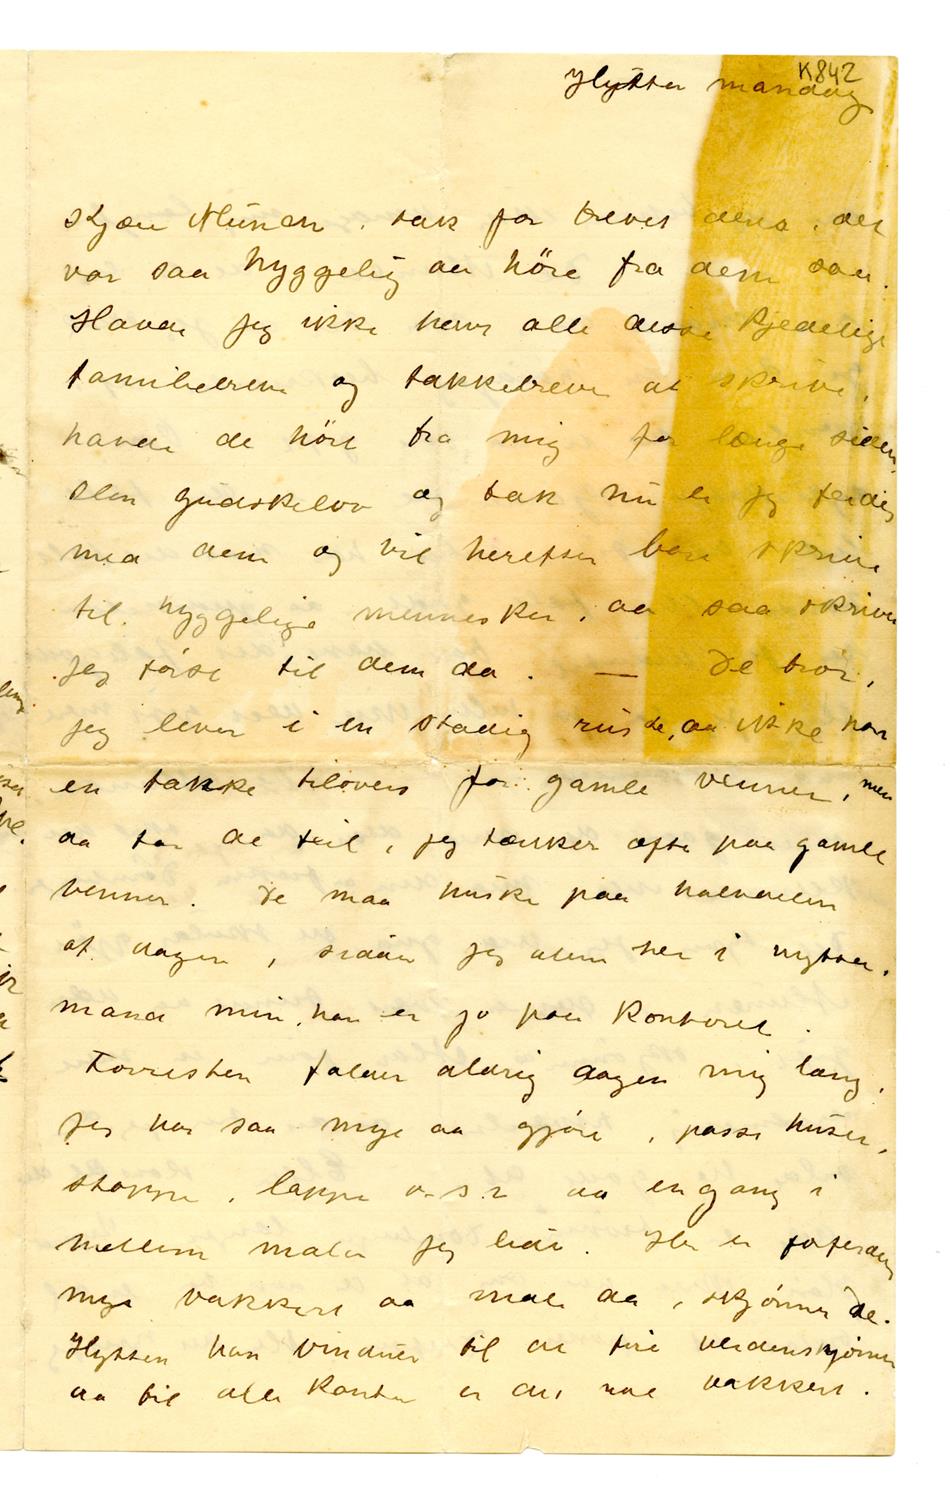 K842
Hytten mandag
Kjære Munch, tak for brevet deres, det
var saa hyggelig aa høre fra dem saa.
Havde jeg ikke havt alle disse kjedelige
familiebreve og takkebreve at skrive,
havde de hört fra mig for længe siden,
Men gudskelov og tak nu er jeg ferdig
med dem og vil herefter bare skrive
til hyggelige mennesker, aa saa skriver
jeg först til dem da. — De tror,
jeg lever i en stadig rus te, aa ikke har
en takke tilovers for gamle venner, men
aa tar de feil, jeg tænker ofte paa gamle
venner. De maa huske paa halvdelen
af dagen, sidder jeg alene her i hytten.
mand min, han er jo paa kontoret.
Forresten falder aldrig dagen mig lang,
jeg har saa mye aa gjøre, passe huset,
stoppe, lappe o.s.v. aa engang i
mellem maler jeg lidt. Her er
mye vakkert aa male da, skjønner De.
Hytten har vinduer til de fire verdenshjørner
aa til alle kanter er det vakkert.